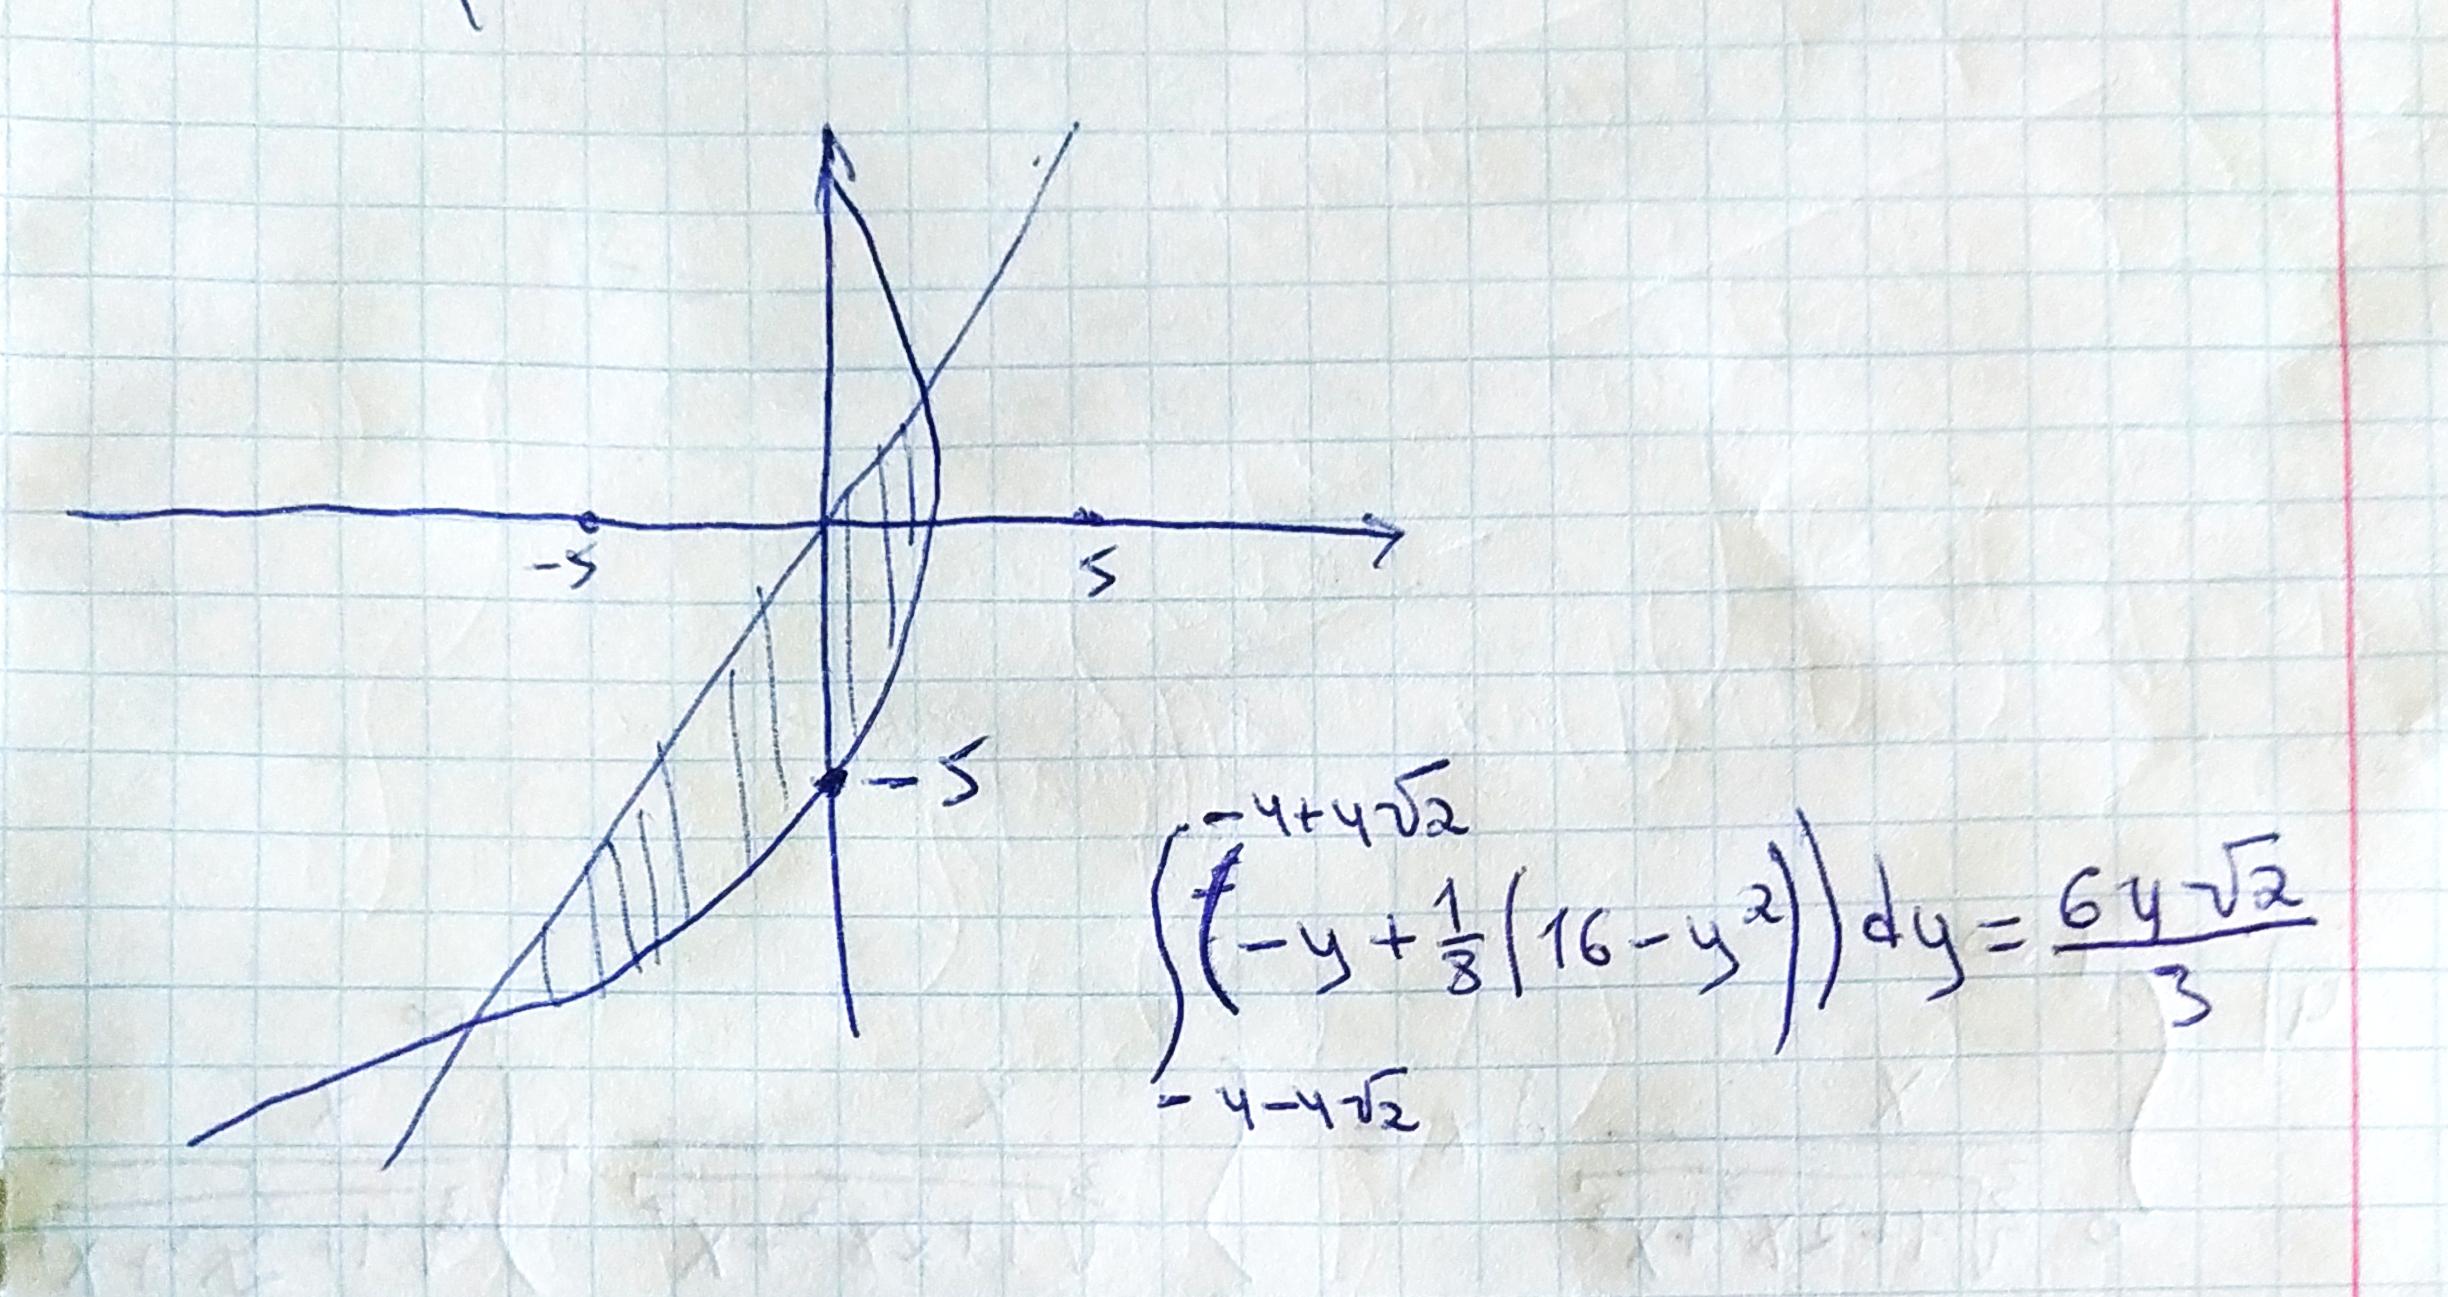 -5 5
-5
∫_{-4-4√2}^{-4+4√2} (-y + 1/8 (16 - y²)) dy = 64√2/3